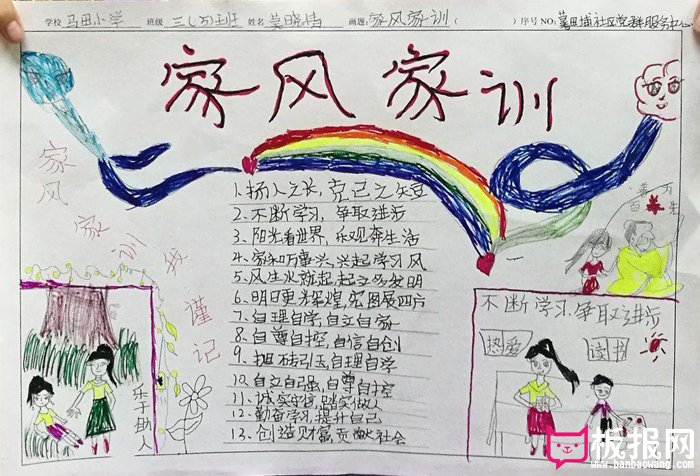 学校 马田小学 班级 三(5)班 姓名 莫晓情 画题: 家风家训 ( ) 序号NO: 薯田埔社区党群服务中心
家风家训
家风家训我谨记
1、扬人之长,克己之短
2、不断学习,争取进步
3、阳光看世界,乐观奔生活
4、家和万事兴,兴起学习风
5、风生水就起,起立多发明
6、明日更光辉煌,宏图展四方
7、自理自学,自立自家
8、自尊自控,自信自创
9、抛砖引玉,自理自学
10、自立自强,自尊自控
11、诚实守信,踏实做人
12、勤奋学习,提升自己
13、创造财富,贡献社会
乐于助人
不断学习,争取进步
热爱
读书
板报网
www.banbaowang.com